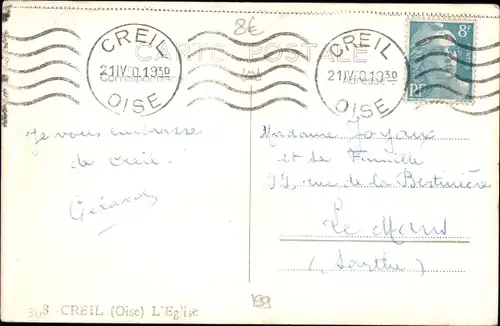 8€
CARTE POSTALE
Correspondance
CREIL
21 IV 0.1930
OISE
CREIL
21 IV 0.1930
OISE
8F
RF
Je vous embrasse
de Creil.
Gérard
Madame Joyaux
et sa Famille
rue de la
Le Mans
(Sarthe)
199
CREIL (Oise) L'Eglise